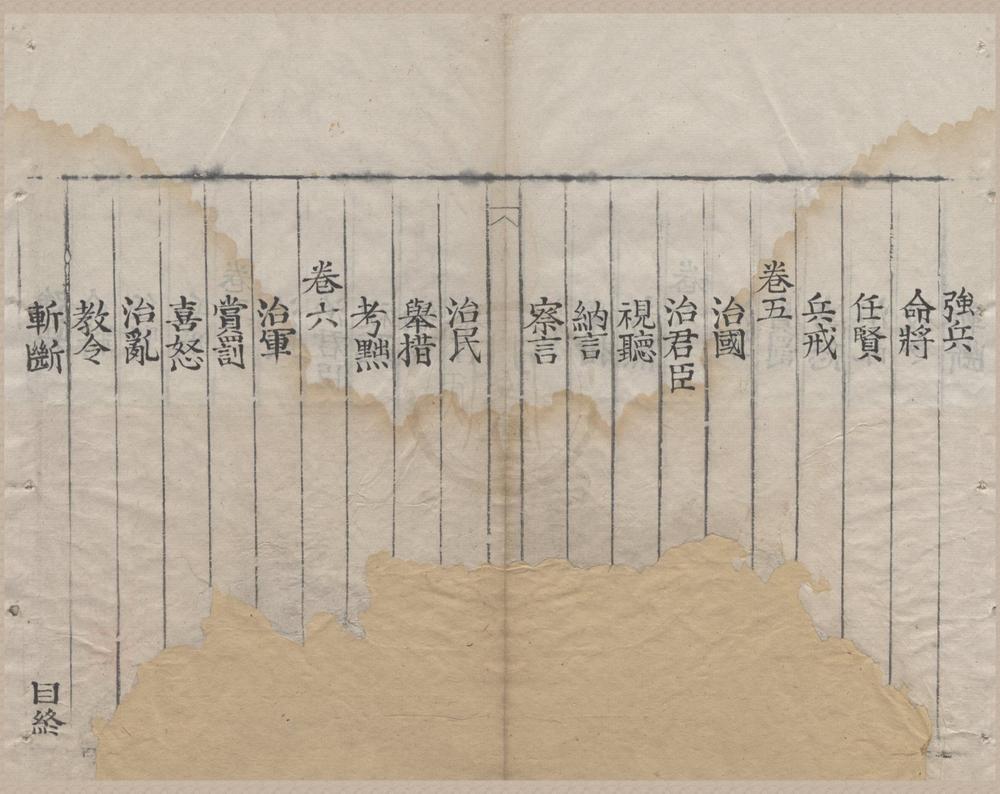 強兵
命將
任賢
兵戒
卷五
治國
治君臣
視聽
納言
察言
治民
舉措
考黜
卷六
治軍
賞罰
喜怒
治亂
教令
斬斷
目終